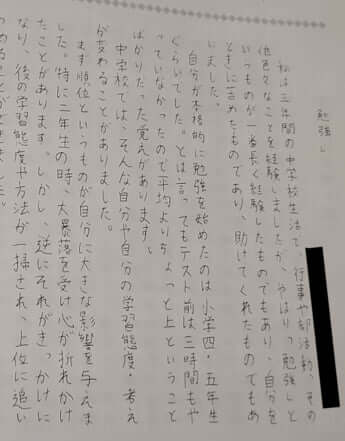 勉強
私は三年間の中学校生活で、行事や部活動、その
他色々なことを経験しましたが、やはり「勉強」と
いうものが一番長く経験したものでもあり、自分を
ときに苦しめたものであり、助けてくれたものでもあ
りました。
自分が本格的に勉強を始めたのは小学四・五年生
ぐらいでした。とは言ってもテスト前は三時間もや
っていなかったので平均よりちょっと上ということ
ばかりだった覚えがあります。
中学校では、そんな自分や自分の学習態度・考え
が変わることがありました。
まず順位というものが自分に大きな影響を与えま
した。特に二年生の時、大暴落を受け心が折れかけ
たことがあります。しかし、逆にそれがきっかけに
なり、後の学習態度や方法が一掃され、上位に追い
つめることができました。